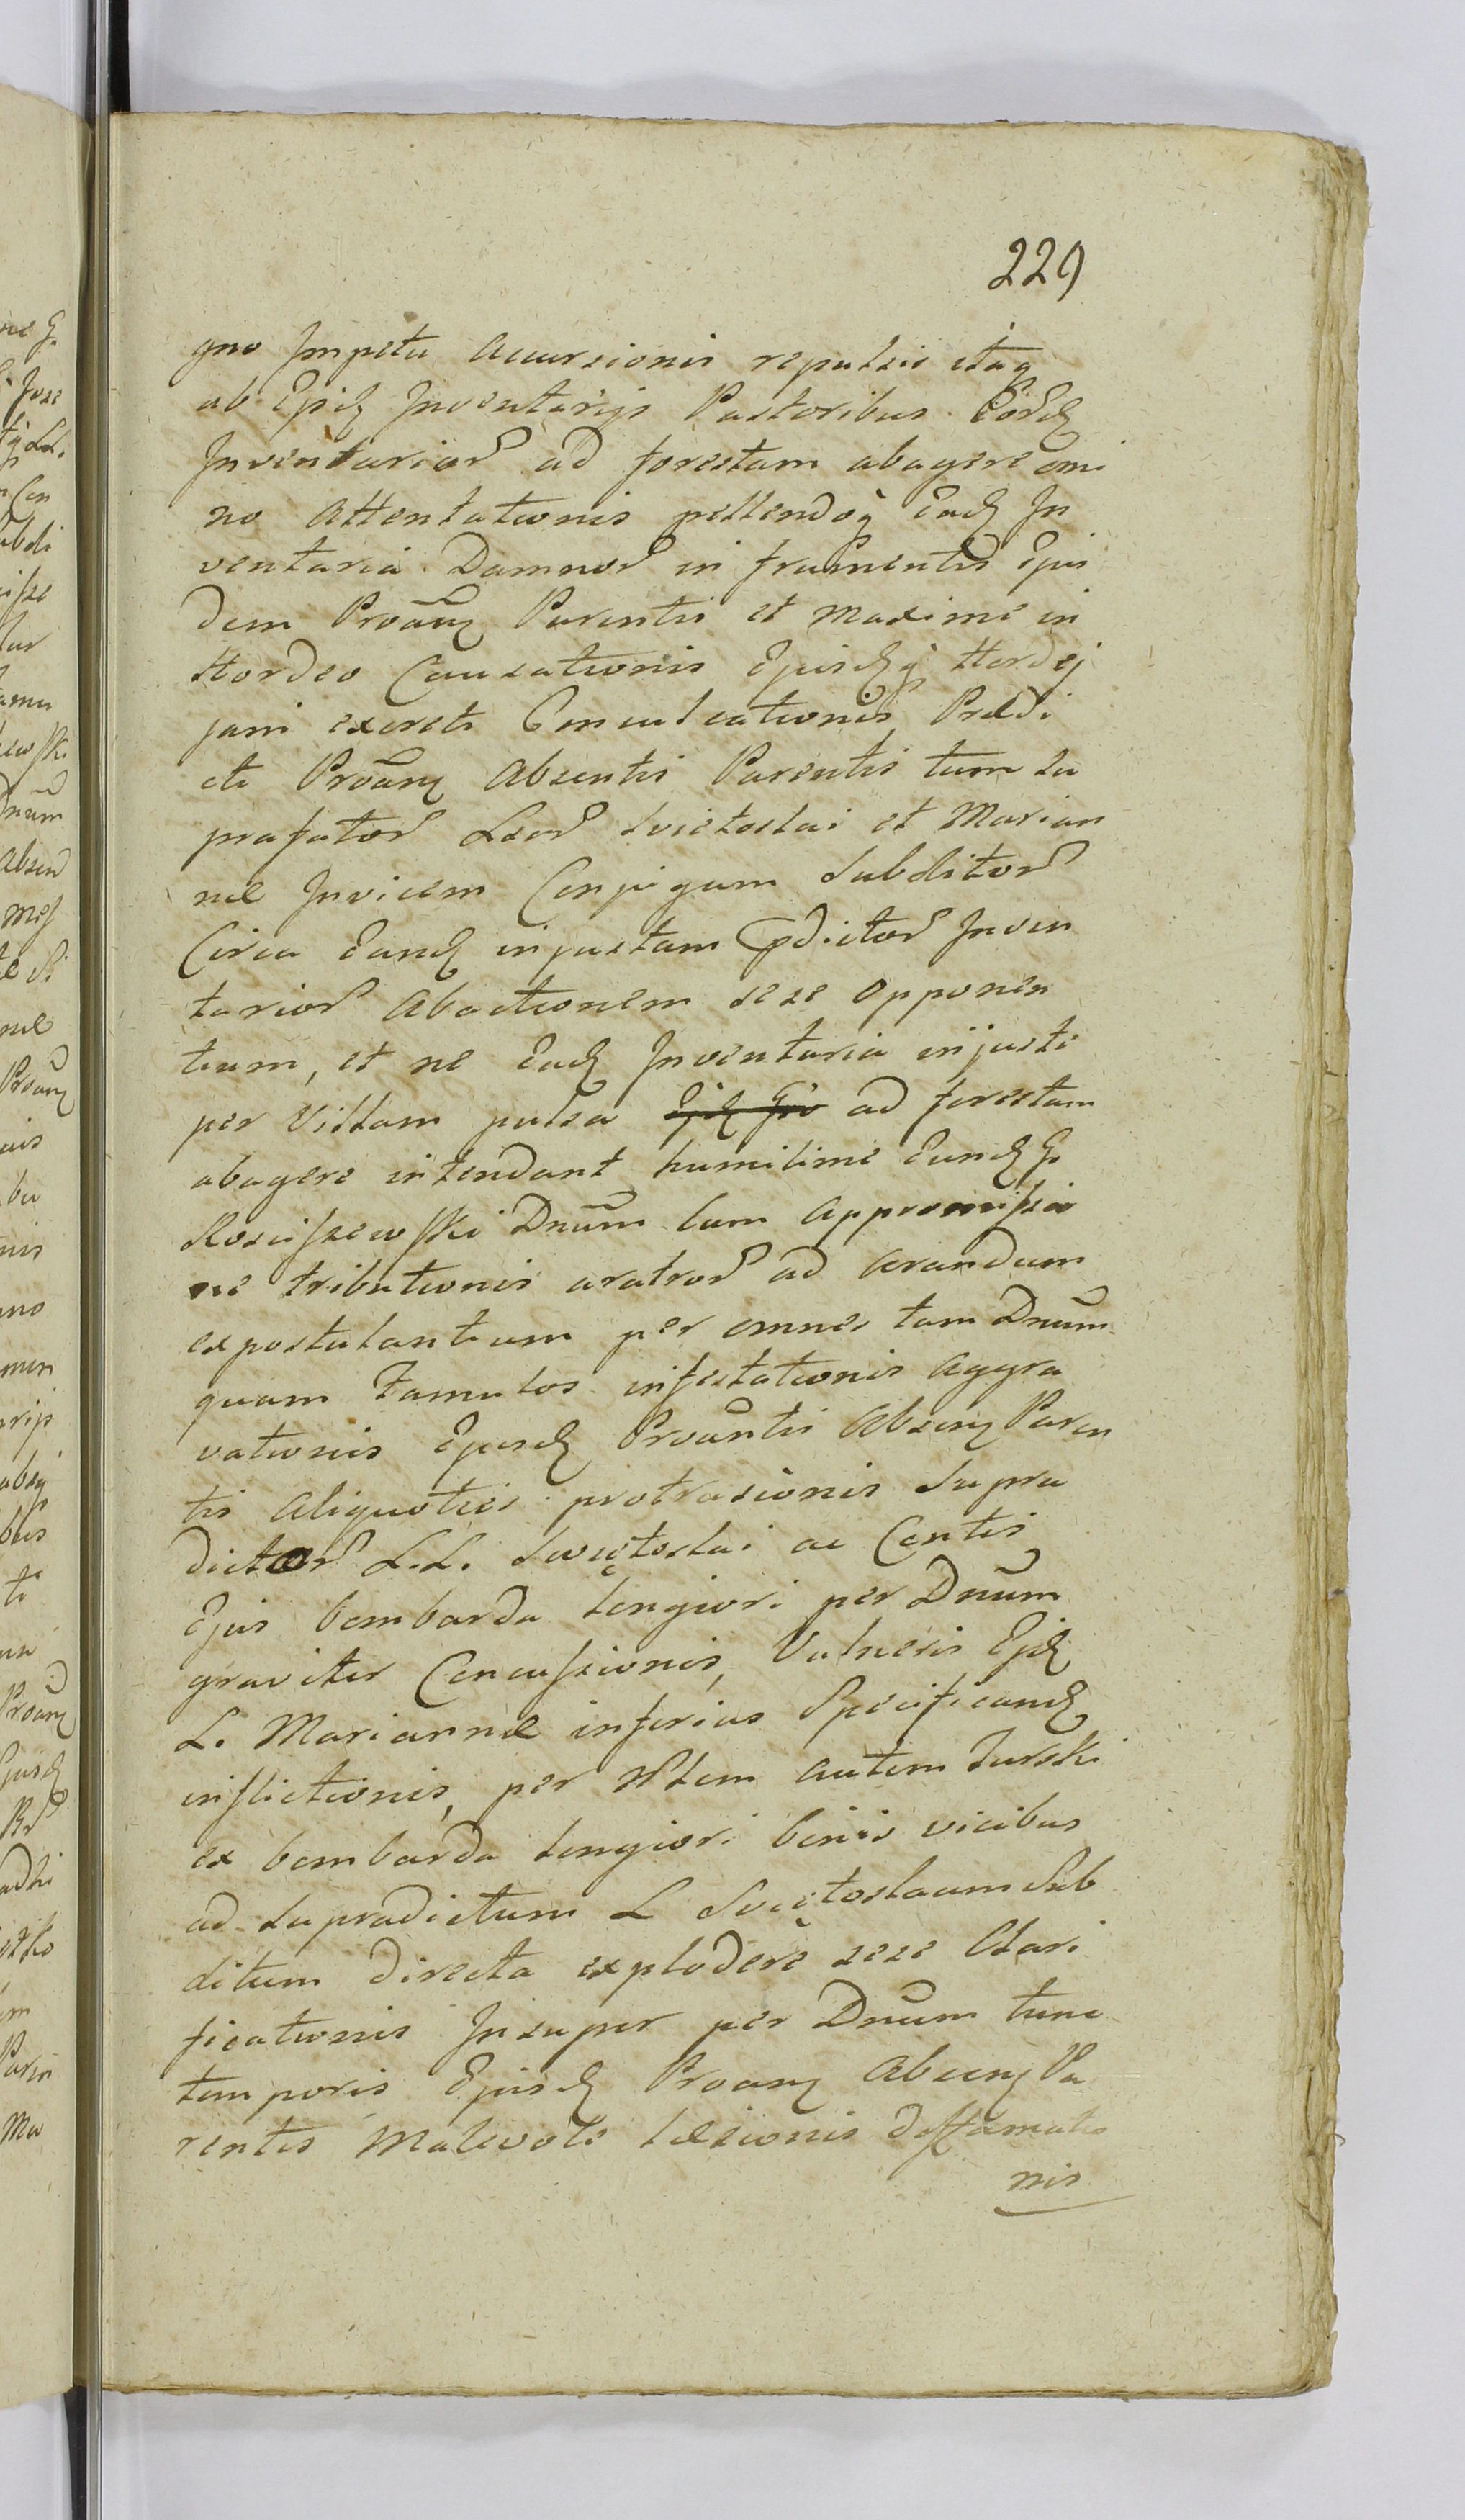 229
gno Impetu accursionis repulsis itaq
ab Epis Inventarijs Pastoribus Eord
Inventarior ad forestam abagere omi
no Attentationis pellendoq Ead In
ventaria Damnor in frumentis Ejus
dem Proãn Parentis et maxime in
Hordeo Causationis Ejusdq Hordej
jam excreti Conculcationis Prædi
cti Proãn Absentis Parentis tum su
prafator LLor Swietoslai et Marian
næ Invicem Conjugum Subditor
Circa Eand injustam pdictor Inven
tarior Abactionem sese Opponen
tium, et ne Ead Inventaria injuste
per Villam pulsa ad forestam
abagere intendant humilime Eund G.
Rosciszewski Dnũm cum Appromissio
ne tributionis aratror ad Arandum
expostulantium per omnes tam Dnũm
quam Famulos infestationis Aggra
vationis Ejusd Proãntis Absen Paren
tis Aliquoties protrasionis Supra
dictor L.L. Swiętoslai ac Contis
Ejus bombarda longiori per Dnũm
graviter Concussionis, Vulneris Ejd
L. Mariannæ inferius Specificand
inflictionis, per Nblem autem Turski
ex bombarda longiori binis vicibus
ad supradictum L Swiętoslaum Sub
ditum directa explodere sese Clari
ficationis Insuper per Dnũm tunc
temporis Ejusd Proan Absen Pa
rentis Malevole læsionis diffamatio
nis